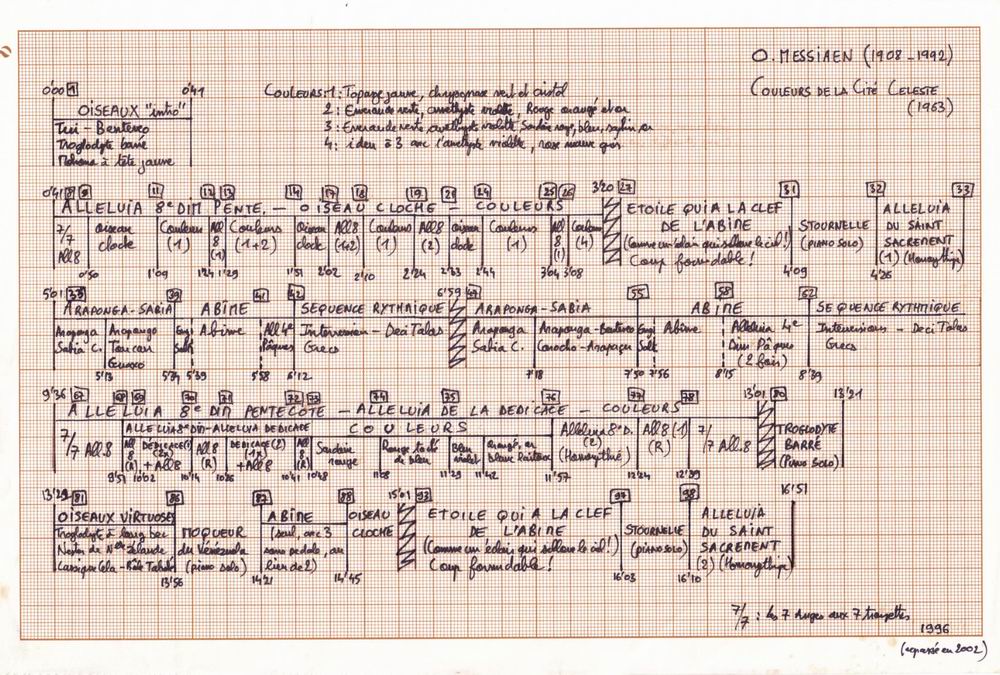 O. MESSIAEN (1908-1992)
COULEURS DE LA CITÉ CELESTE
(1963)
0'00 1 0'41
OISEAUX "intro"
Tui - Benteveo
Troglodyte barré
Mohoua à tête jaune
COULEURS: 1: Topaze jaune, chrysoprase vert et cristal
2: Emeraude verte, améthyste violette, Rouge orangé et or
3: Emeraude verte, améthyste violette, rouge, bleu, or
4: idem à 3 avec l'améthyste violette, rose mauve gris
0'41 11 12 13 14 17 18 19 21 24 25 26 3'20 27 31 32 33
ALLELUIA 8e DIM PENTE. - OISEAU CLOCHE - COULEURS
ETOILE QUI A LA CLEF DE L'ABÎME
(Comme un éclair qui sillonne le ciel!)
Coup formidable!
STOURNELLE (PIANO SOLO)
ALLELUIA DU SAINT SACREMENT (1) (Homorythmie)
7/7 All 8
oiseau cloche
Couleurs (1)
All 8 (1)
Couleurs (1+2)
Oiseau cloche
All 8 (1+2)
Couleurs (1)
All 8 (2)
oiseau cloche
Couleurs (1)
All 8 (1)
Couleurs (4)
0'50 1'09 1'24 1'29 1'51 2'02 2'10 2'24 2'33 2'44 3'04 3'08 4'09 4'26
5'01 33 39 41 42 6'59 49 55 58 62
ARAPONGA-SABIA ABÎME SEQUENCE RYTHMIQUE ARAPONGA-SABIA ABÎME SEQUENCE RYTHMIQUE
Araponga Sabia C.
Araponga Toucan
Abîme
All 4e Pâques
Intervension - Deci Talas Grecs
Araponga Sabia C.
Araponga - Benteveo
Abîme
Alleluia 4e Dim Pâques (2 fois)
Intervensions - Deci Talas Grecs
5'13 5'34 5'39 5'58 6'12 7'18 7'50 7'56 8'15 8'39
9'36 67 68 69 70 71 72 73 74 75 76 77 78 13'01 80 13'21
ALLELUIA 8e DIM PENTECÔTE - ALLELUIA DE LA DEDICACE - COULEURS
ALLELUIA 8e DIM - ALLELUIA DEDICACE
COULEURS
7/7 All 8
All 8 (R)
DEDICACE (1) (2x) + All 8
All 8 (R)
DEDICACE (2) (1x) + All 8
All 8 (R)
Sardoine rouge
Rouge taché de bleu
Bleu violet
orangé, or, blanc laiteux
Alleluia 8e D. (2) (Homorythmie)
All 8 (1) (R)
7/7 All. 8
TROGLODYTE BARRÉ (Piano SOLO)
9'51 10'02 10'14 10'26 10'41 10'48 11'08 11'29 11'42 11'57 12'24 12'39
13'21 81 86 87 88 15'01 93 97 98 16'51
OISEAUX VIRTUOSES
Troglodyte à long bec
Nestor de Nelle Zélande
MOQUEUR du Vénézuela (piano solo)
ABÎME
(seul, avec 3 sans pedale, au lieu de 2)
OISEAU CLOCHE
ETOILE QUI A LA CLEF DE L'ABÎME
(Comme un éclair qui sillonne le ciel!)
Coup formidable!
STOURNELLE (piano solo)
ALLELUIA DU SAINT SACREMENT (2) (Homorythmie)
13'56 14'21 14'45 16'03 16'10
7/7: les 7 Anges aux 7 trompettes
1996
(repassé en 2002)